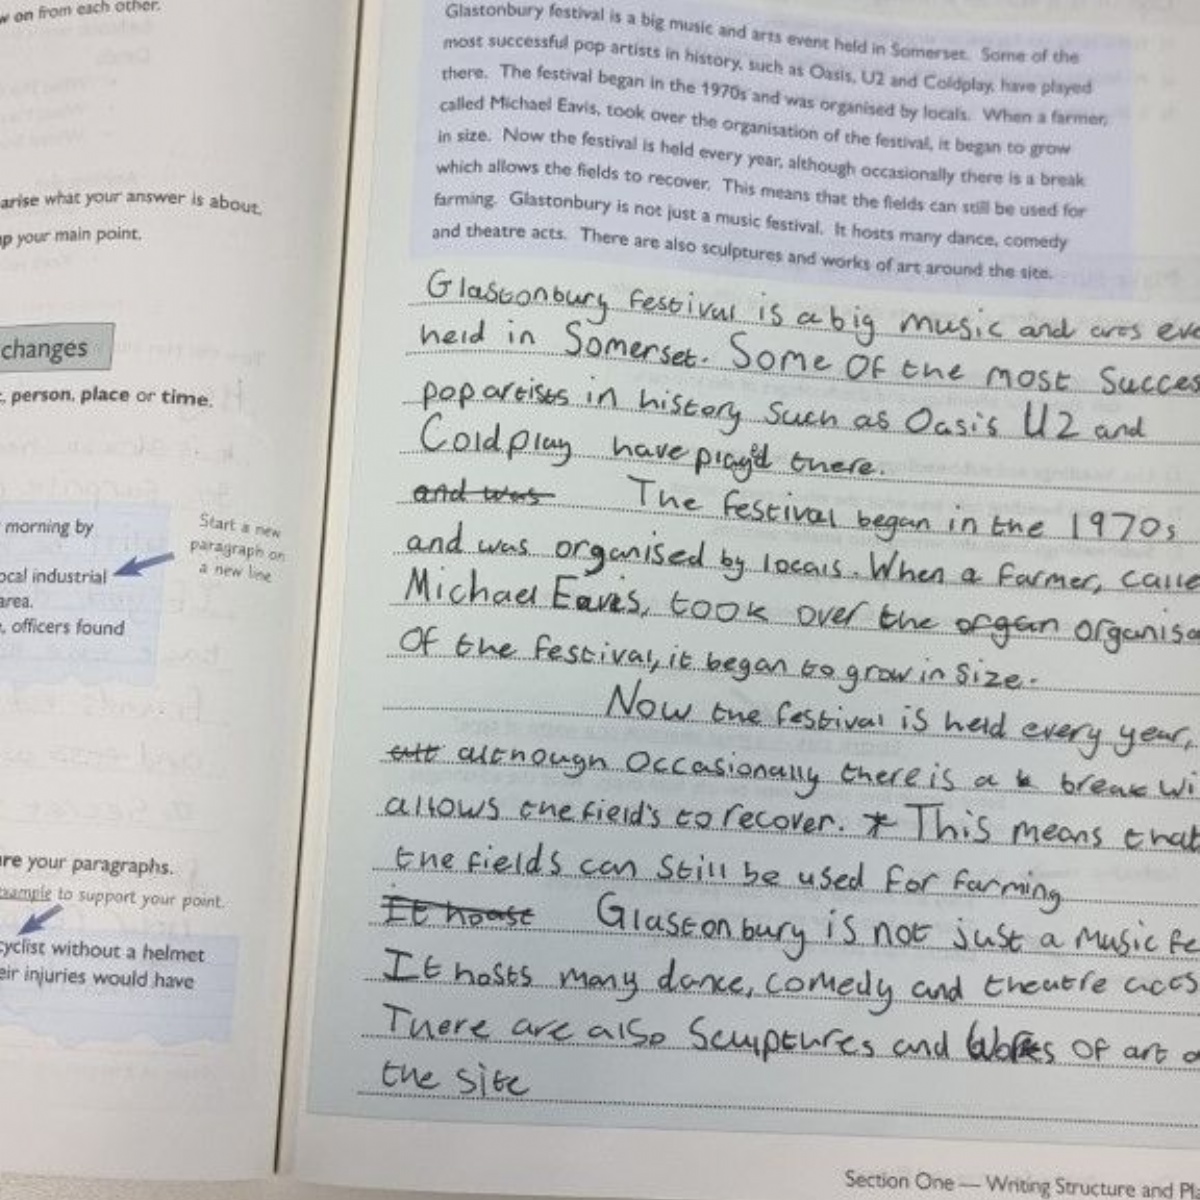 w on from each other.
arise what your answer is about.
p your main point.
changes
, person, place or time.
morning by
ocal industrial
area.
, officers found
Start a new
paragraph on
a new line
re your paragraphs.
xample to support your point.
cyclist without a helmet
eir injuries would have
Glastonbury festival is a big music and arts event held in Somerset. Some of the
most successful pop artists in history, such as Oasis, U2 and Coldplay, have played
there. The festival began in the 1970s and was organised by locals. When a farmer,
called Michael Eavis, took over the organisation of the festival, it began to grow
in size. Now the festival is held every year, although occasionally there is a break
which allows the fields to recover. This means that the fields can still be used for
farming. Glastonbury is not just a music festival. It hosts many dance, comedy
and theatre acts. There are also sculptures and works of art around the site.
Glastonbury festival is a big music and arts eve
held in Somerset. Some Of the most Succes
pop artists in history such as Oasis U2 and
Coldplay have play'd there.
and was The festival began in the 1970s
and was organised by locals. When a farmer, calle
Michael Eavis, took over the organ organisa
Of the festival, it began to grow in size.
Now the festival is held every year,
alt although Occasionally there is a b break wi
allows the field's to recover. * This means that
the fields can still be used for farming
It house Glastonbury is not just a music fe
It hosts many dance, comedy and theatre acts
There are also Sculptures and Works of art a
the site
Section One — Writing Structure and Pl